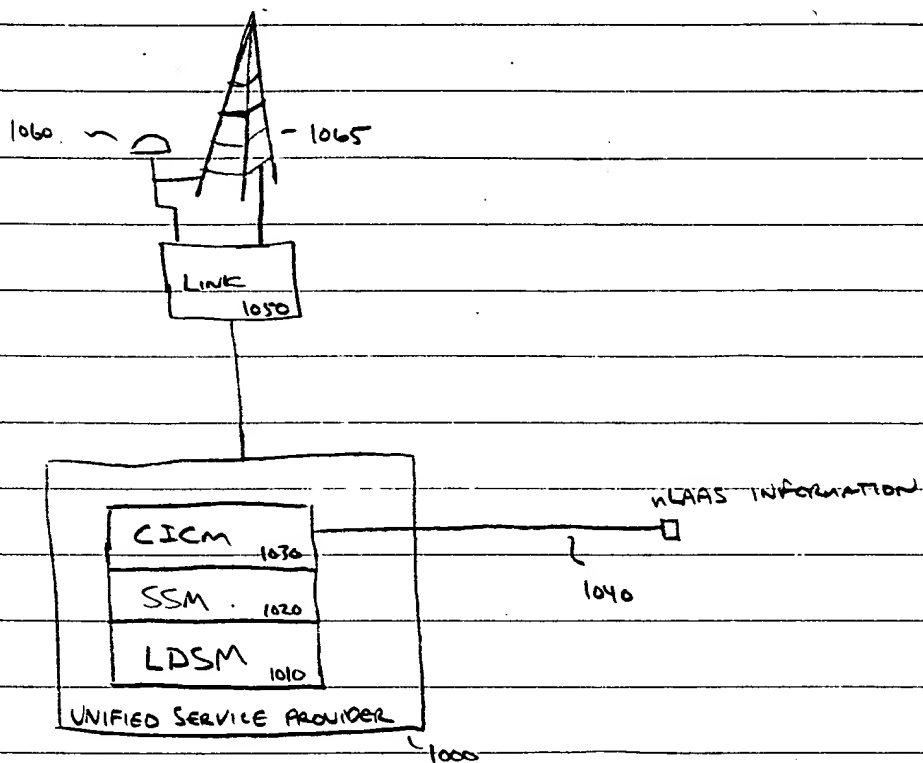 1060
1065
LINK
1050
nLAAS INFORMATION
CICM
1030
1040
SSM
1020
LDSM
1010
UNIFIED SERVICE PROVIDER
1000